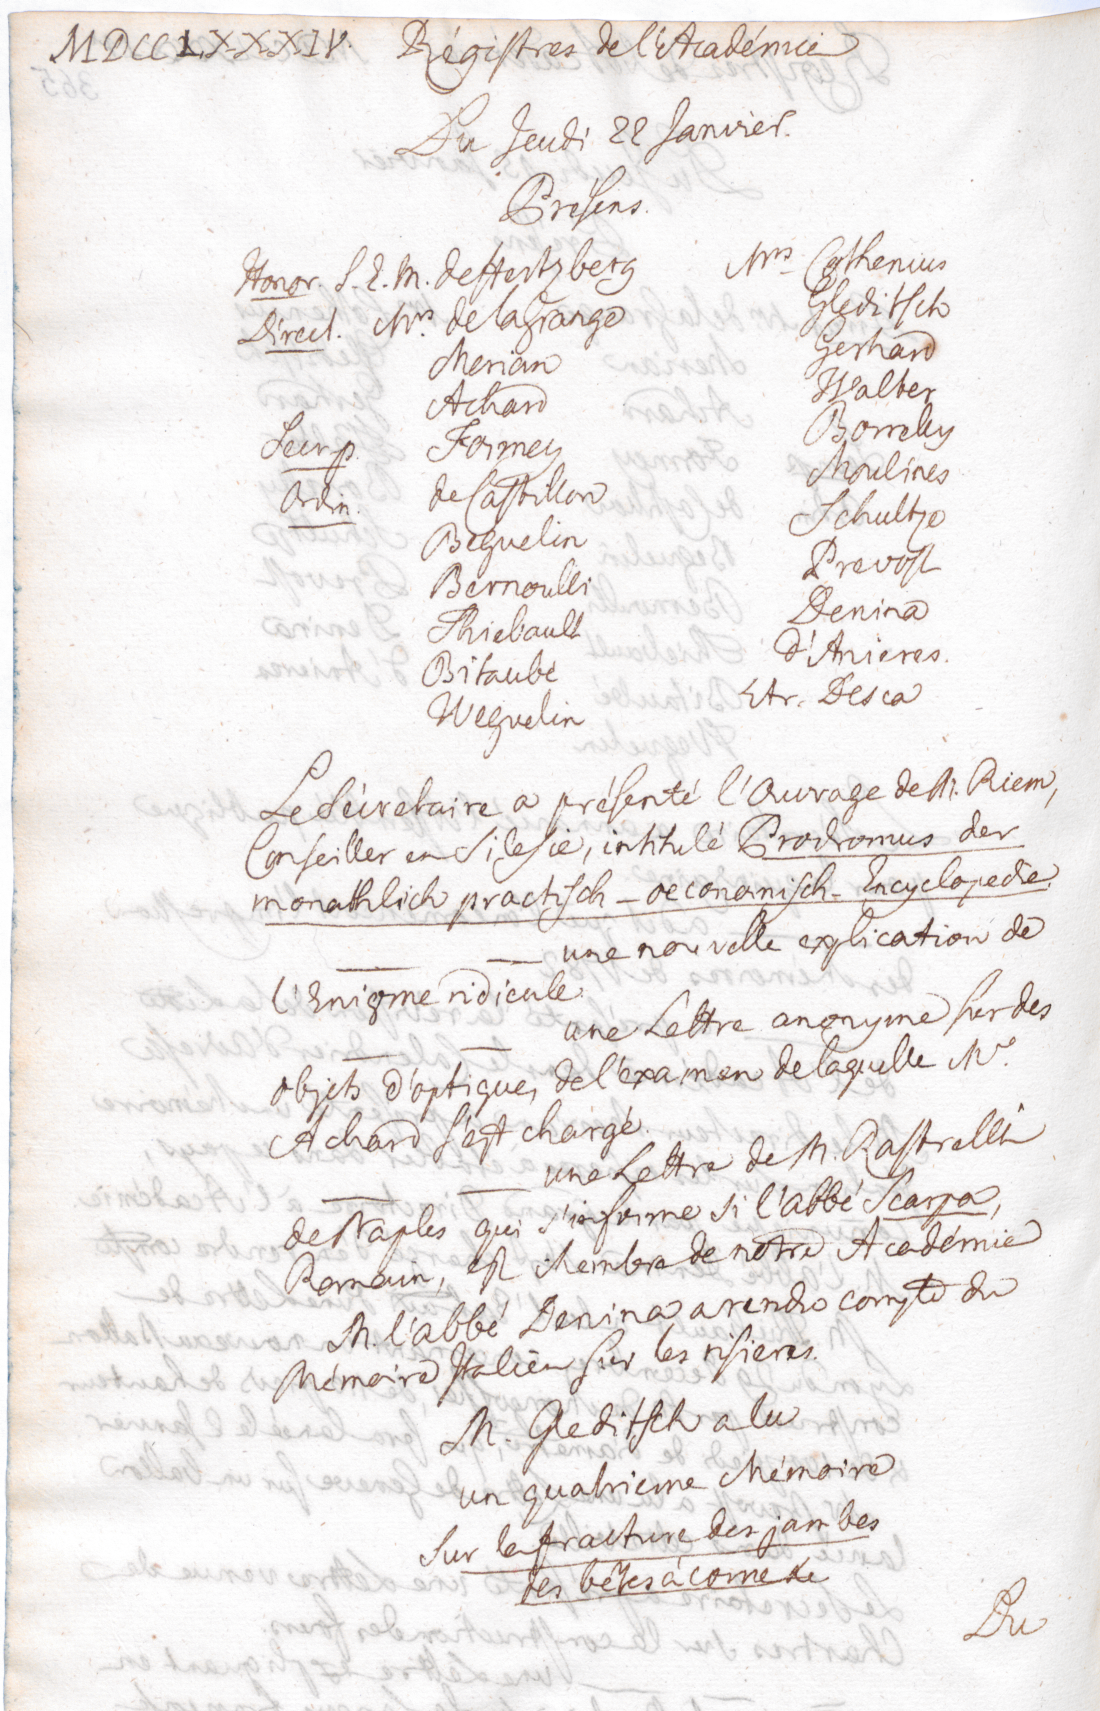 MDCCLXXXIV. Régistres de l'Académie
Du Jeudi 22 Janvier.
Présens.
Honor. S. E. M. de Hertzberg
Direct. Mrs de la Grange
Merian
Achard
Secr. p. Formey
Ordin. de Castillon
Beguelin
Bernoulli
Thiebault
Bitaubé
Weguelin
Mrs Cothenius
Gleditsch
Gerhard
Walter
Borrelly
Moulines
Schultze
Prevost
Denina
d'Anieres.
Etr. Desca
Le Sécretaire a présenté l'Ouvrage de M. Riem,
Conseiller en Silesie, intitulé Prodromus der
monathlich practisch - oeconomisch - Encyclopedie.
— — une nouvelle explication de
l'Enigme ridicule.
— — une Lettre anonyme sur des
objets d'optique, de l'examen de laquelle Mr.
Achard s'est chargé.
— — une Lettre de M. Rastrelli
de Naples qui s'informe si l'abbé Scarpa,
Romain, est Membre de notre Académie
M. l'abbé Denina a rendu compte du
Mémoire Italien sur les risieres.
M. Gleditsch a lu
un quatrieme Mémoire
Sur la fracture des jambes
des bêtes à corne &c
Du